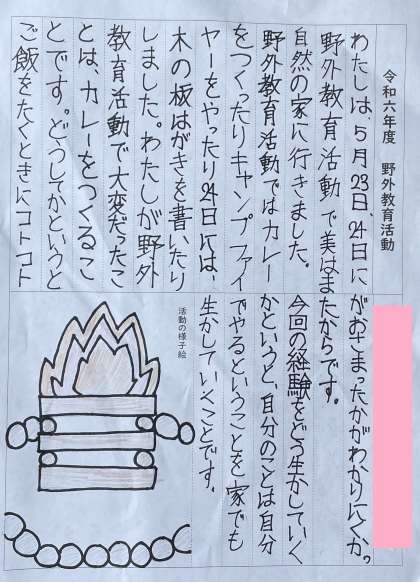 令和六年度 野外教育活動
わたしは、5月23日、24日に
野外教育活動で美はま
自然の家に行きました。
野外教育活動ではカレー
をつくったりキャンプファイ
ヤーをやったり24日には、
木の板はがきを書いたり
しました。わたしが野外
教育活動で大変だったこ
とは、カレーをつくるこ
とです。どうしてかというと
ご飯をたくときにコトコト
がおさまったかがわかりにくか
ったからです。
今回の経験をどう生かしていく
かというと、自分のことは自分
でやるということを家でも
生かしていくことです。
活動の様子絵